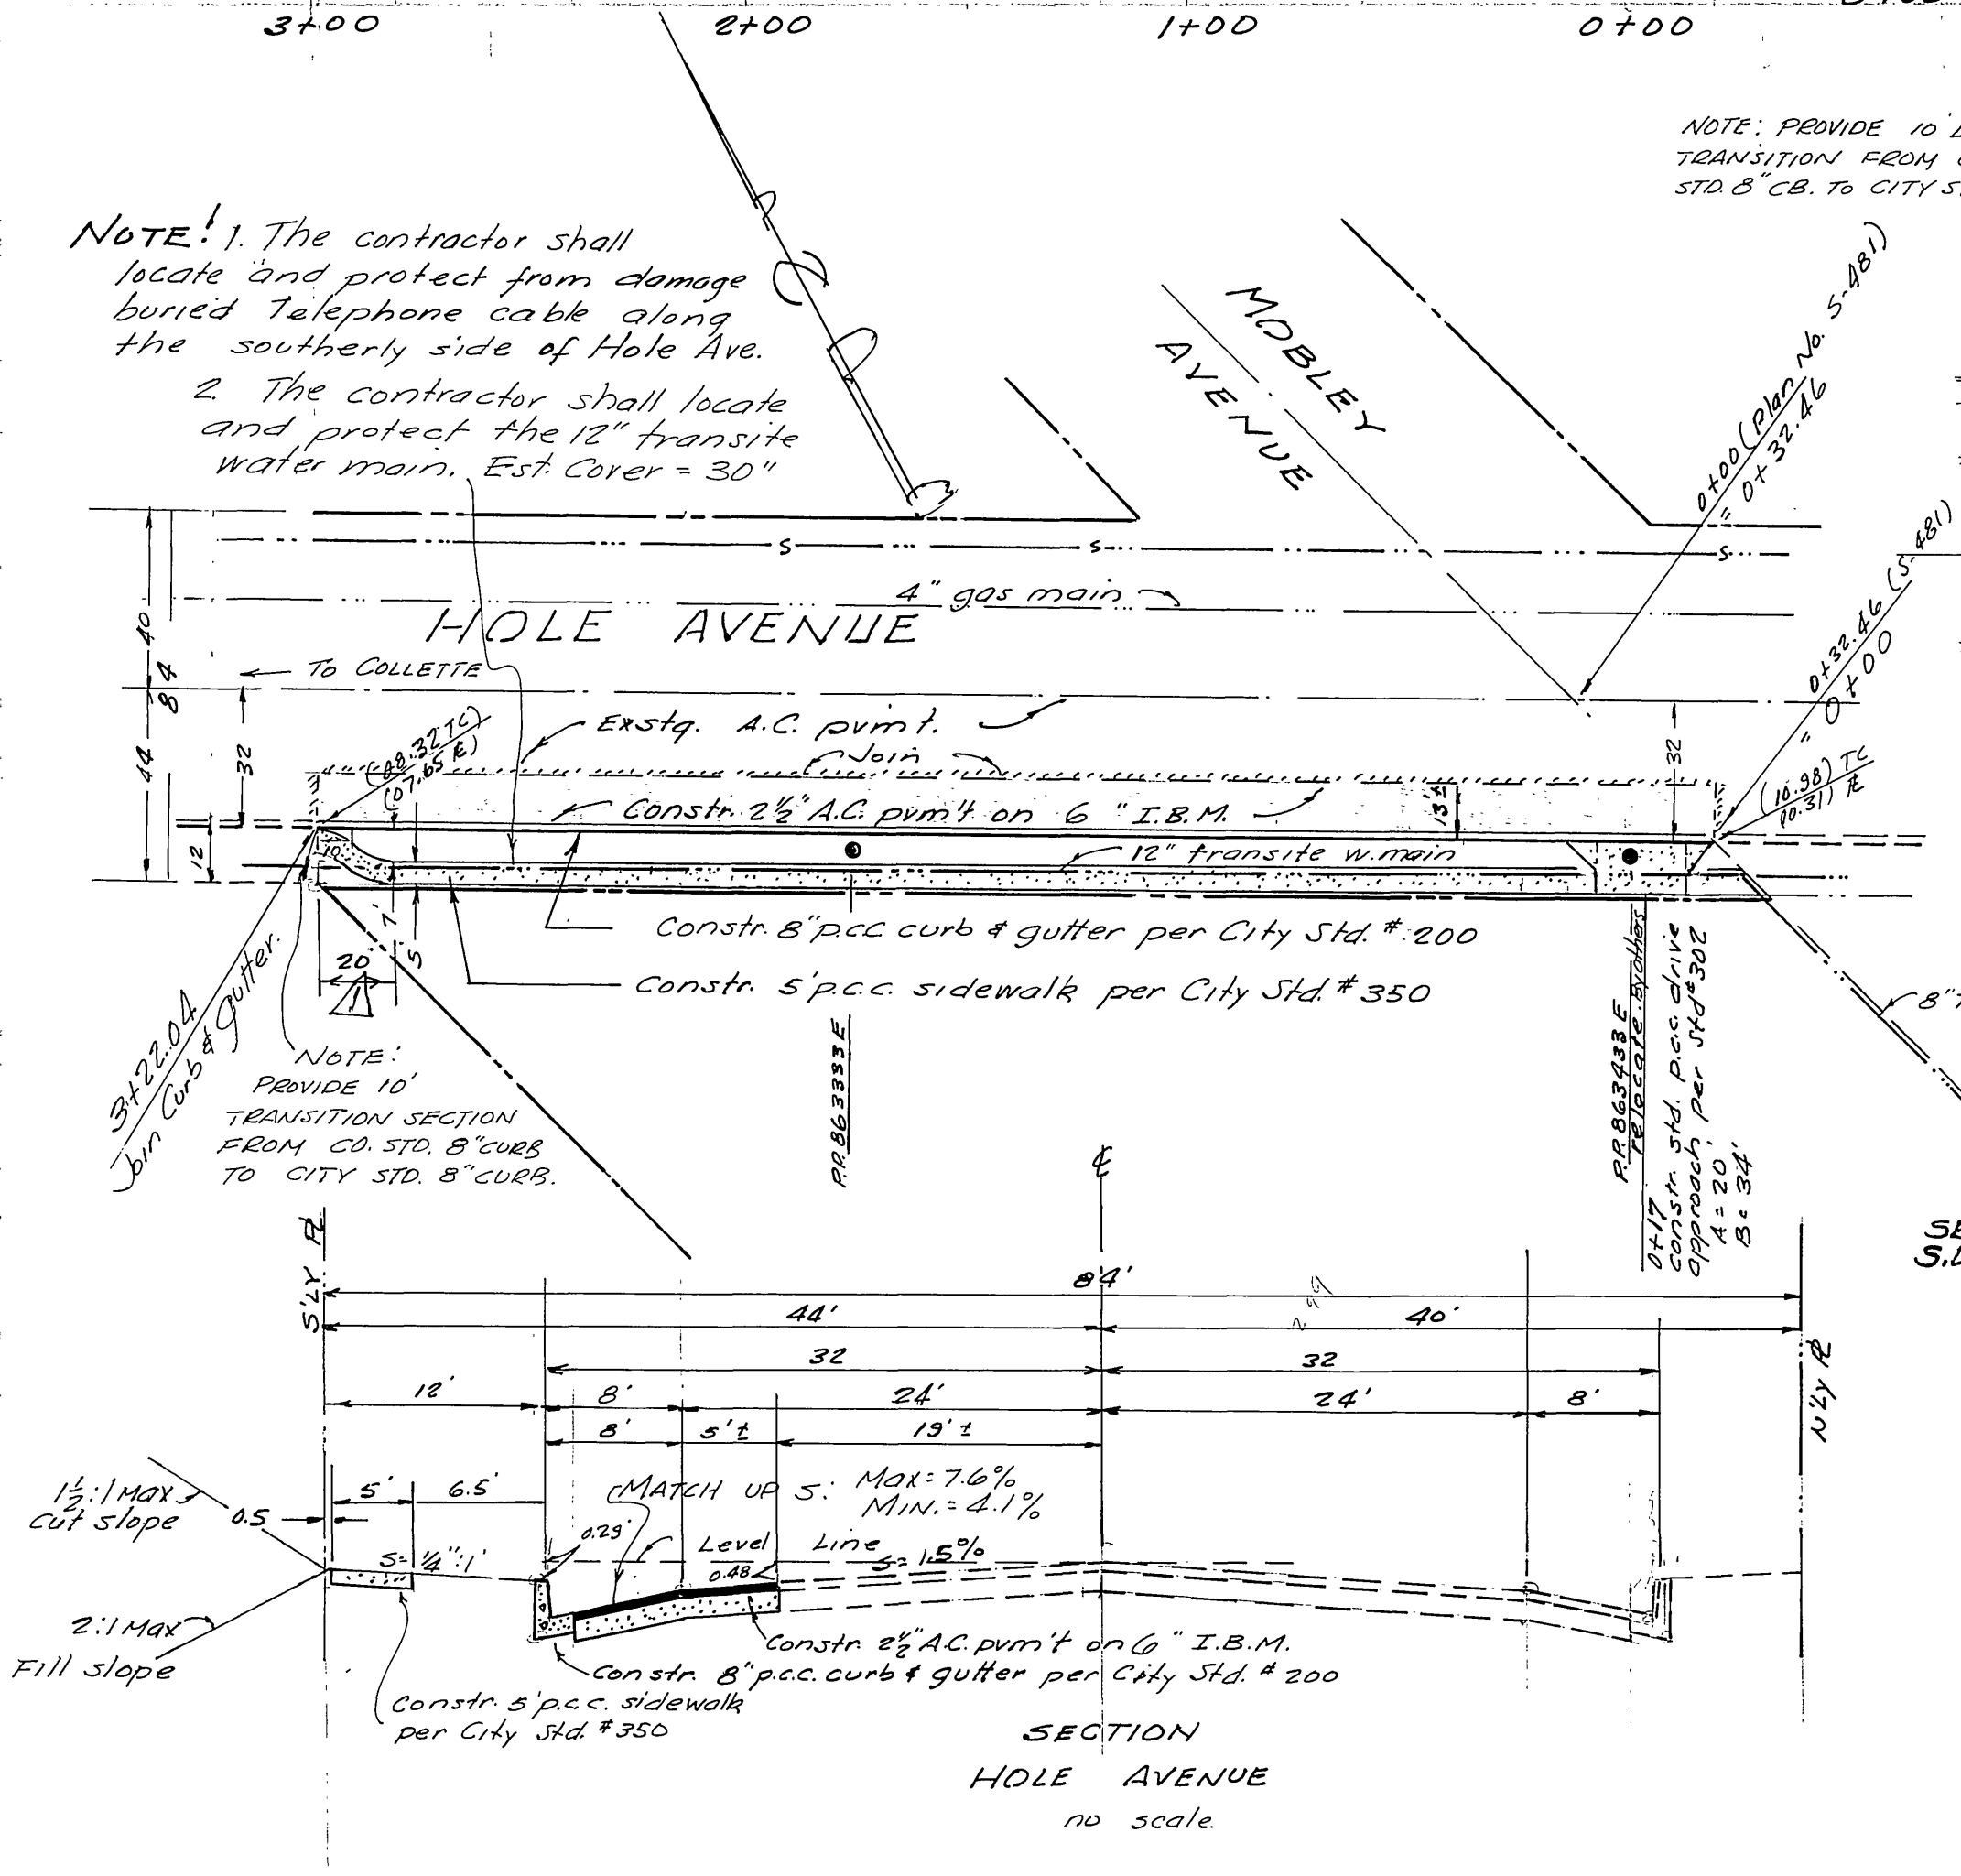 3+00
2+00
1+00
0+00
NOTE: PROVIDE 10'
TRANSITION FROM
STD. 8" CB. TO CITY
NOTE! 1. The contractor shall
locate and protect from damage
buried Telephone cable along
the southerly side of Hole Ave.
2. The contractor shall locate
and protect the 12" transite
water main. Est. Cover = 30"
MOBLEY
AVENUE
0+00 (Plan No. S-481)
= 0+32.46
0+32.46 (S-481)
= 0+00
S
S
S
4" gas main
HOLE AVENUE
← TO COLLETTE
40
84
44
32
12
32
Exstg. A.C. pvm't.
Join
(08.32 TC)
(07.65 ℄)
(10.98) TC
(10.31) ℄
Constr. 2½" A.C. pvm't on 6" I.B.M.
13'±
10'
12" transite w. main
Constr. 8" p.c.c. curb & gutter per City Std. #200
Constr. 5' p.c.c. sidewalk per City Std. #350
20'
7'
5
1
3+22.04
Join Curb & gutter.
NOTE:
PROVIDE 10'
TRANSITION SECTION
FROM CO. STD. 8" CURB
TO CITY STD. 8" CURB.
P.P. 863383E
P.P. 863433E
relocate. By others
0+17
constr. std. p.c.c. drive
approach per std #302
A = 20'
B = 34'
8"
℄
S'LY ℞
84'
44'
40'
32
32
12'
8'
24'
24'
8'
8'
5'±
19'±
N'LY ℞
1½:1 Max
Cut slope
0.5
5'
6.5'
MATCH UP S: Max = 7.6%
MIN. = 4.1%
0.29'
Level Line
S = 1.5%
0.48
S = ¼":1'
2:1 Max
Fill slope
Constr. 2½" A.C. pvm't on 6" I.B.M.
Constr. 8" p.c.c. curb & gutter per City Std. #200
Constr. 5' p.c.c. sidewalk
per City Std. #350
SECTION
HOLE AVENUE
no scale.